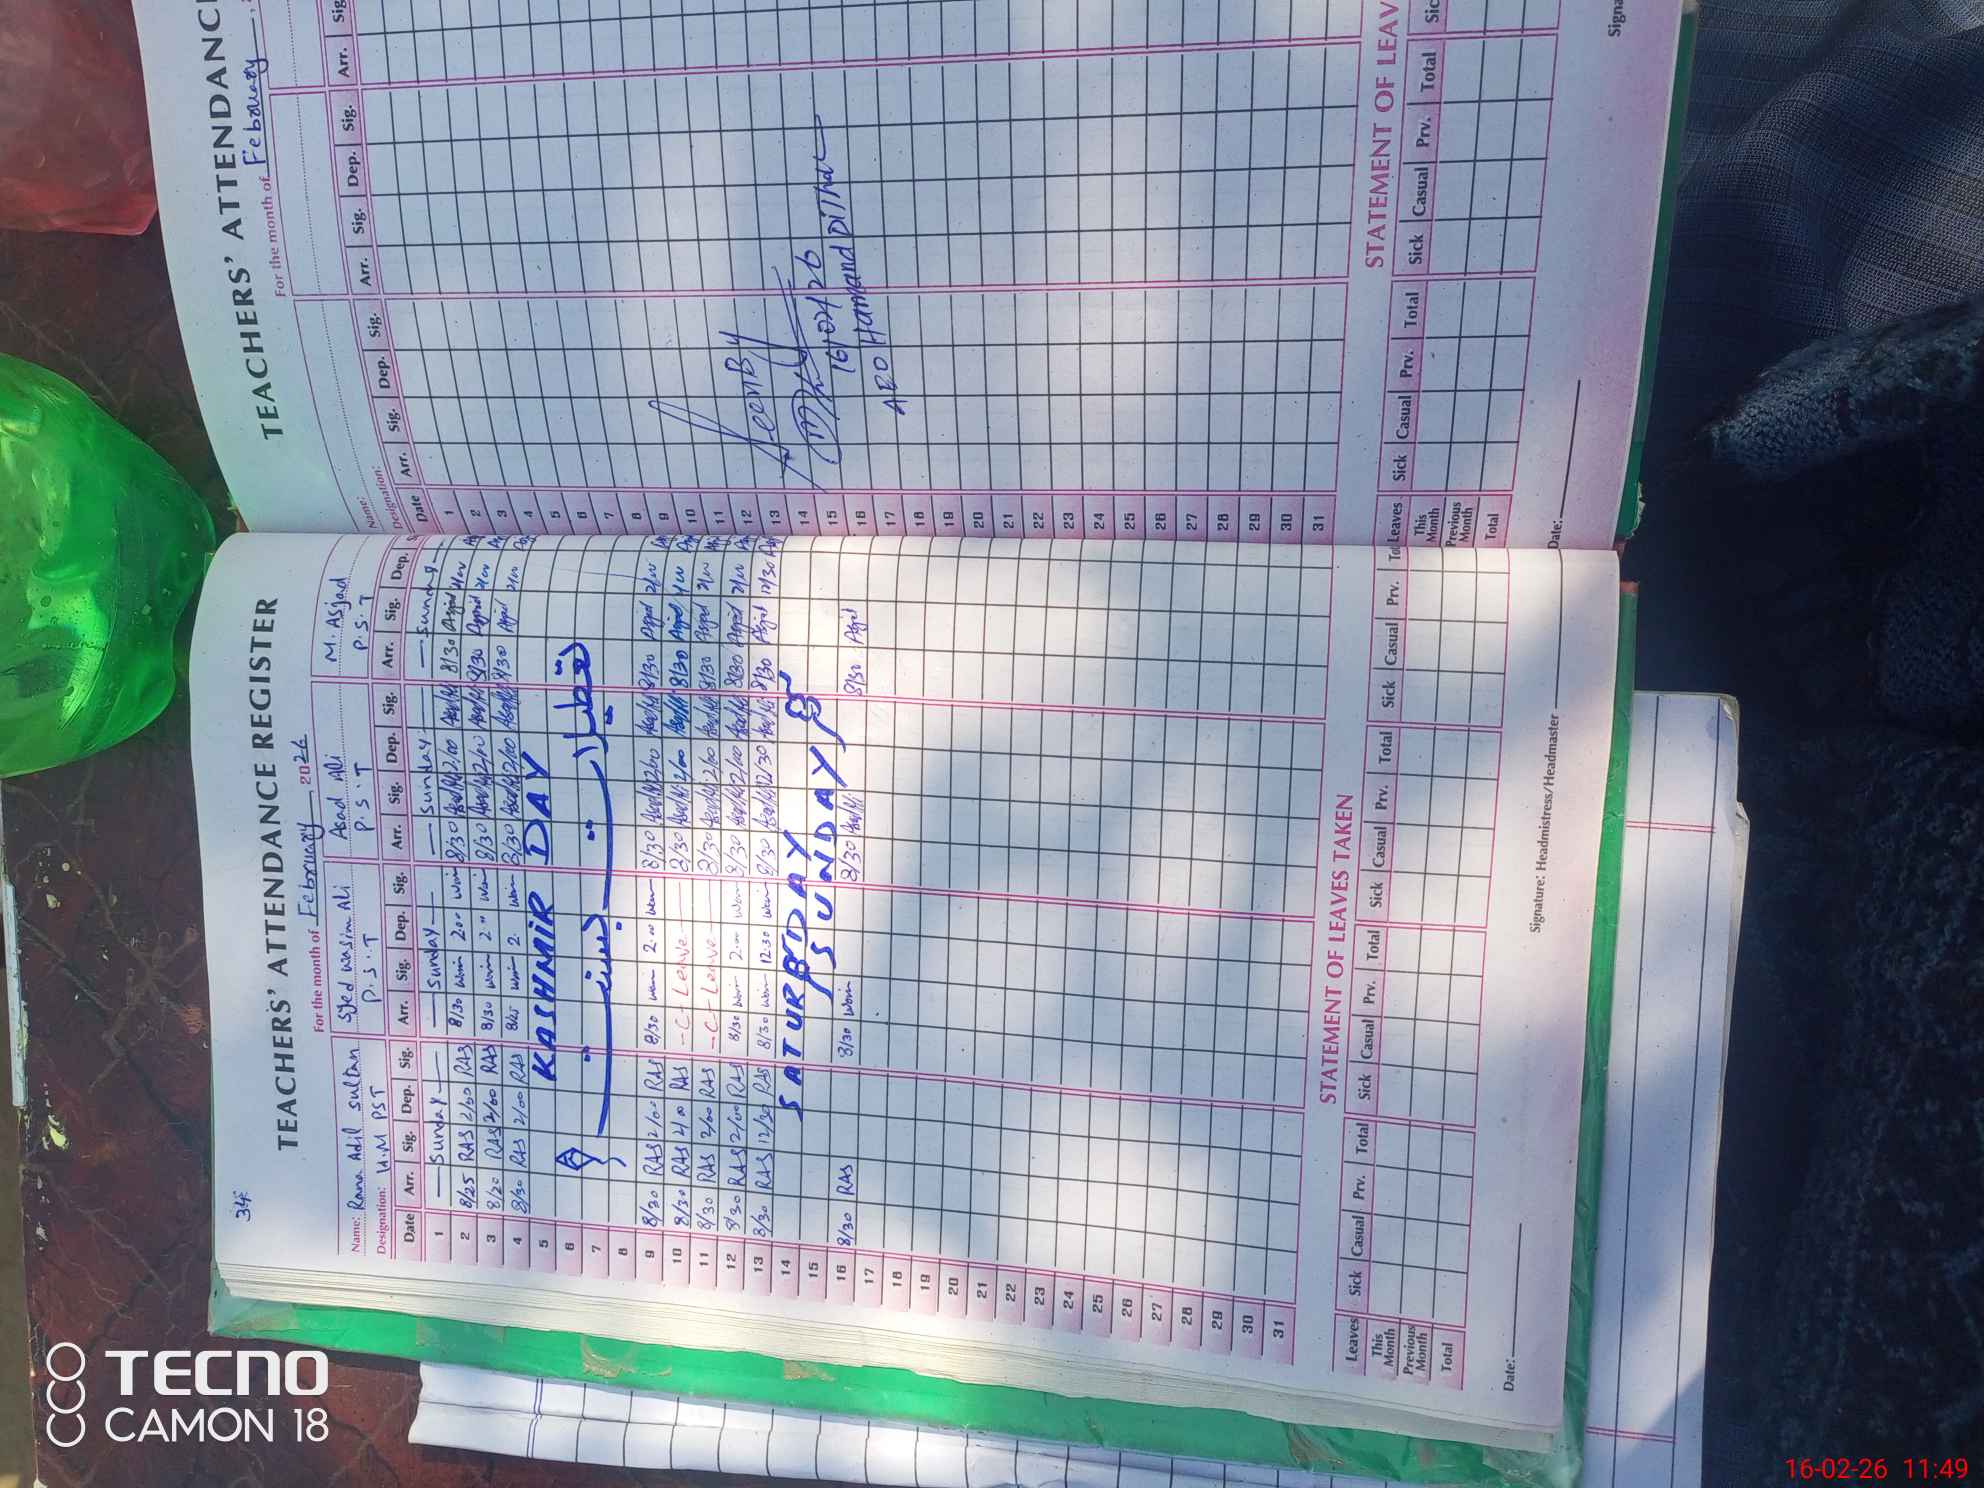 34
TEACHERS' ATTENDANCE REGISTER
For the month of February, 2026
Name: Rana Adil sultan Syed wasim Ali Asad Ali M. Asjad
Designation: H.M PST P.S.T P.S.T P.S.T
Date Arr. Sig. Dep. Sig. Arr. Sig. Dep. Sig. Arr. Sig. Dep. Sig. Arr. Sig. Dep.
1 Sunday Sunday Sunday Sunday
2 8/25 RAS 2/00 RAS 8/30 Wasim 2:00 8/30 2/00 8/30 Asjad 2/00
3 8/20 RAS 2/00 RAS 8/30 2:00 8/30 2/00 8/30 Asjad 2/00
4 8/30 RAS 2/00 RAS 2. 8/30 2/00 8/30 Asjad 2/00
5 KASHMIR DAY
6
7 تعطیلات
8
9 8/30 RAS 2/00 RAS 8/30 2:00 8/30 2/00 8/30 Asjad 2/00
10 8/30 RAS 2/00 RAS -C- Leave 8/30 2/00 8/30 Asjad
11 8/30 RAS 2/00 RAS -C- Leave 8/30 2/00 8/30 Asjad 2/00
12 8/30 RAS 2/00 RAS 8/30 2:00 8/30 2/00 8/30 Asjad 2/00
13 8/30 RAS 12/30 RAS 8/30 12:30 8/30 12/30 8/30 Asjad 12/30
14 SATURDAY
15 SUNDAY
16 8/30 RAS 8/30 8/30 8/30 Asjad
17
18
19
20
21
22
23
24
25
26
27
28
29
30
31
STATEMENT OF LEAVES TAKEN
Leaves Sick Casual Prv. Total Sick Casual Prv. Total Sick Casual Prv. Total Sick Casual Prv.
This Month
Previous Month
Total
Date: Signature: Headmistress/Headmaster
TEACHERS' ATTENDANC
For the month of Febouary
Name:
Designation:
Date Arr. Sig. Dep. Sig. Arr. Sig. Dep. Sig. Arr. Sig
1
2
3
4
5
6
7
8
9
10
11
12
13
14
15
16
17
18
19
20
21
22
23
24
25
26
27
28
29
30
31
Seen By
16/02/26
AEO Hamand
STATEMENT OF LEAV
Leaves Sick Casual Prv. Total Sick Casual Prv. Total Sic
This Month
Previous Month
Total
Date: Signa
TECNO
CAMON 18
16-02-26 11:49